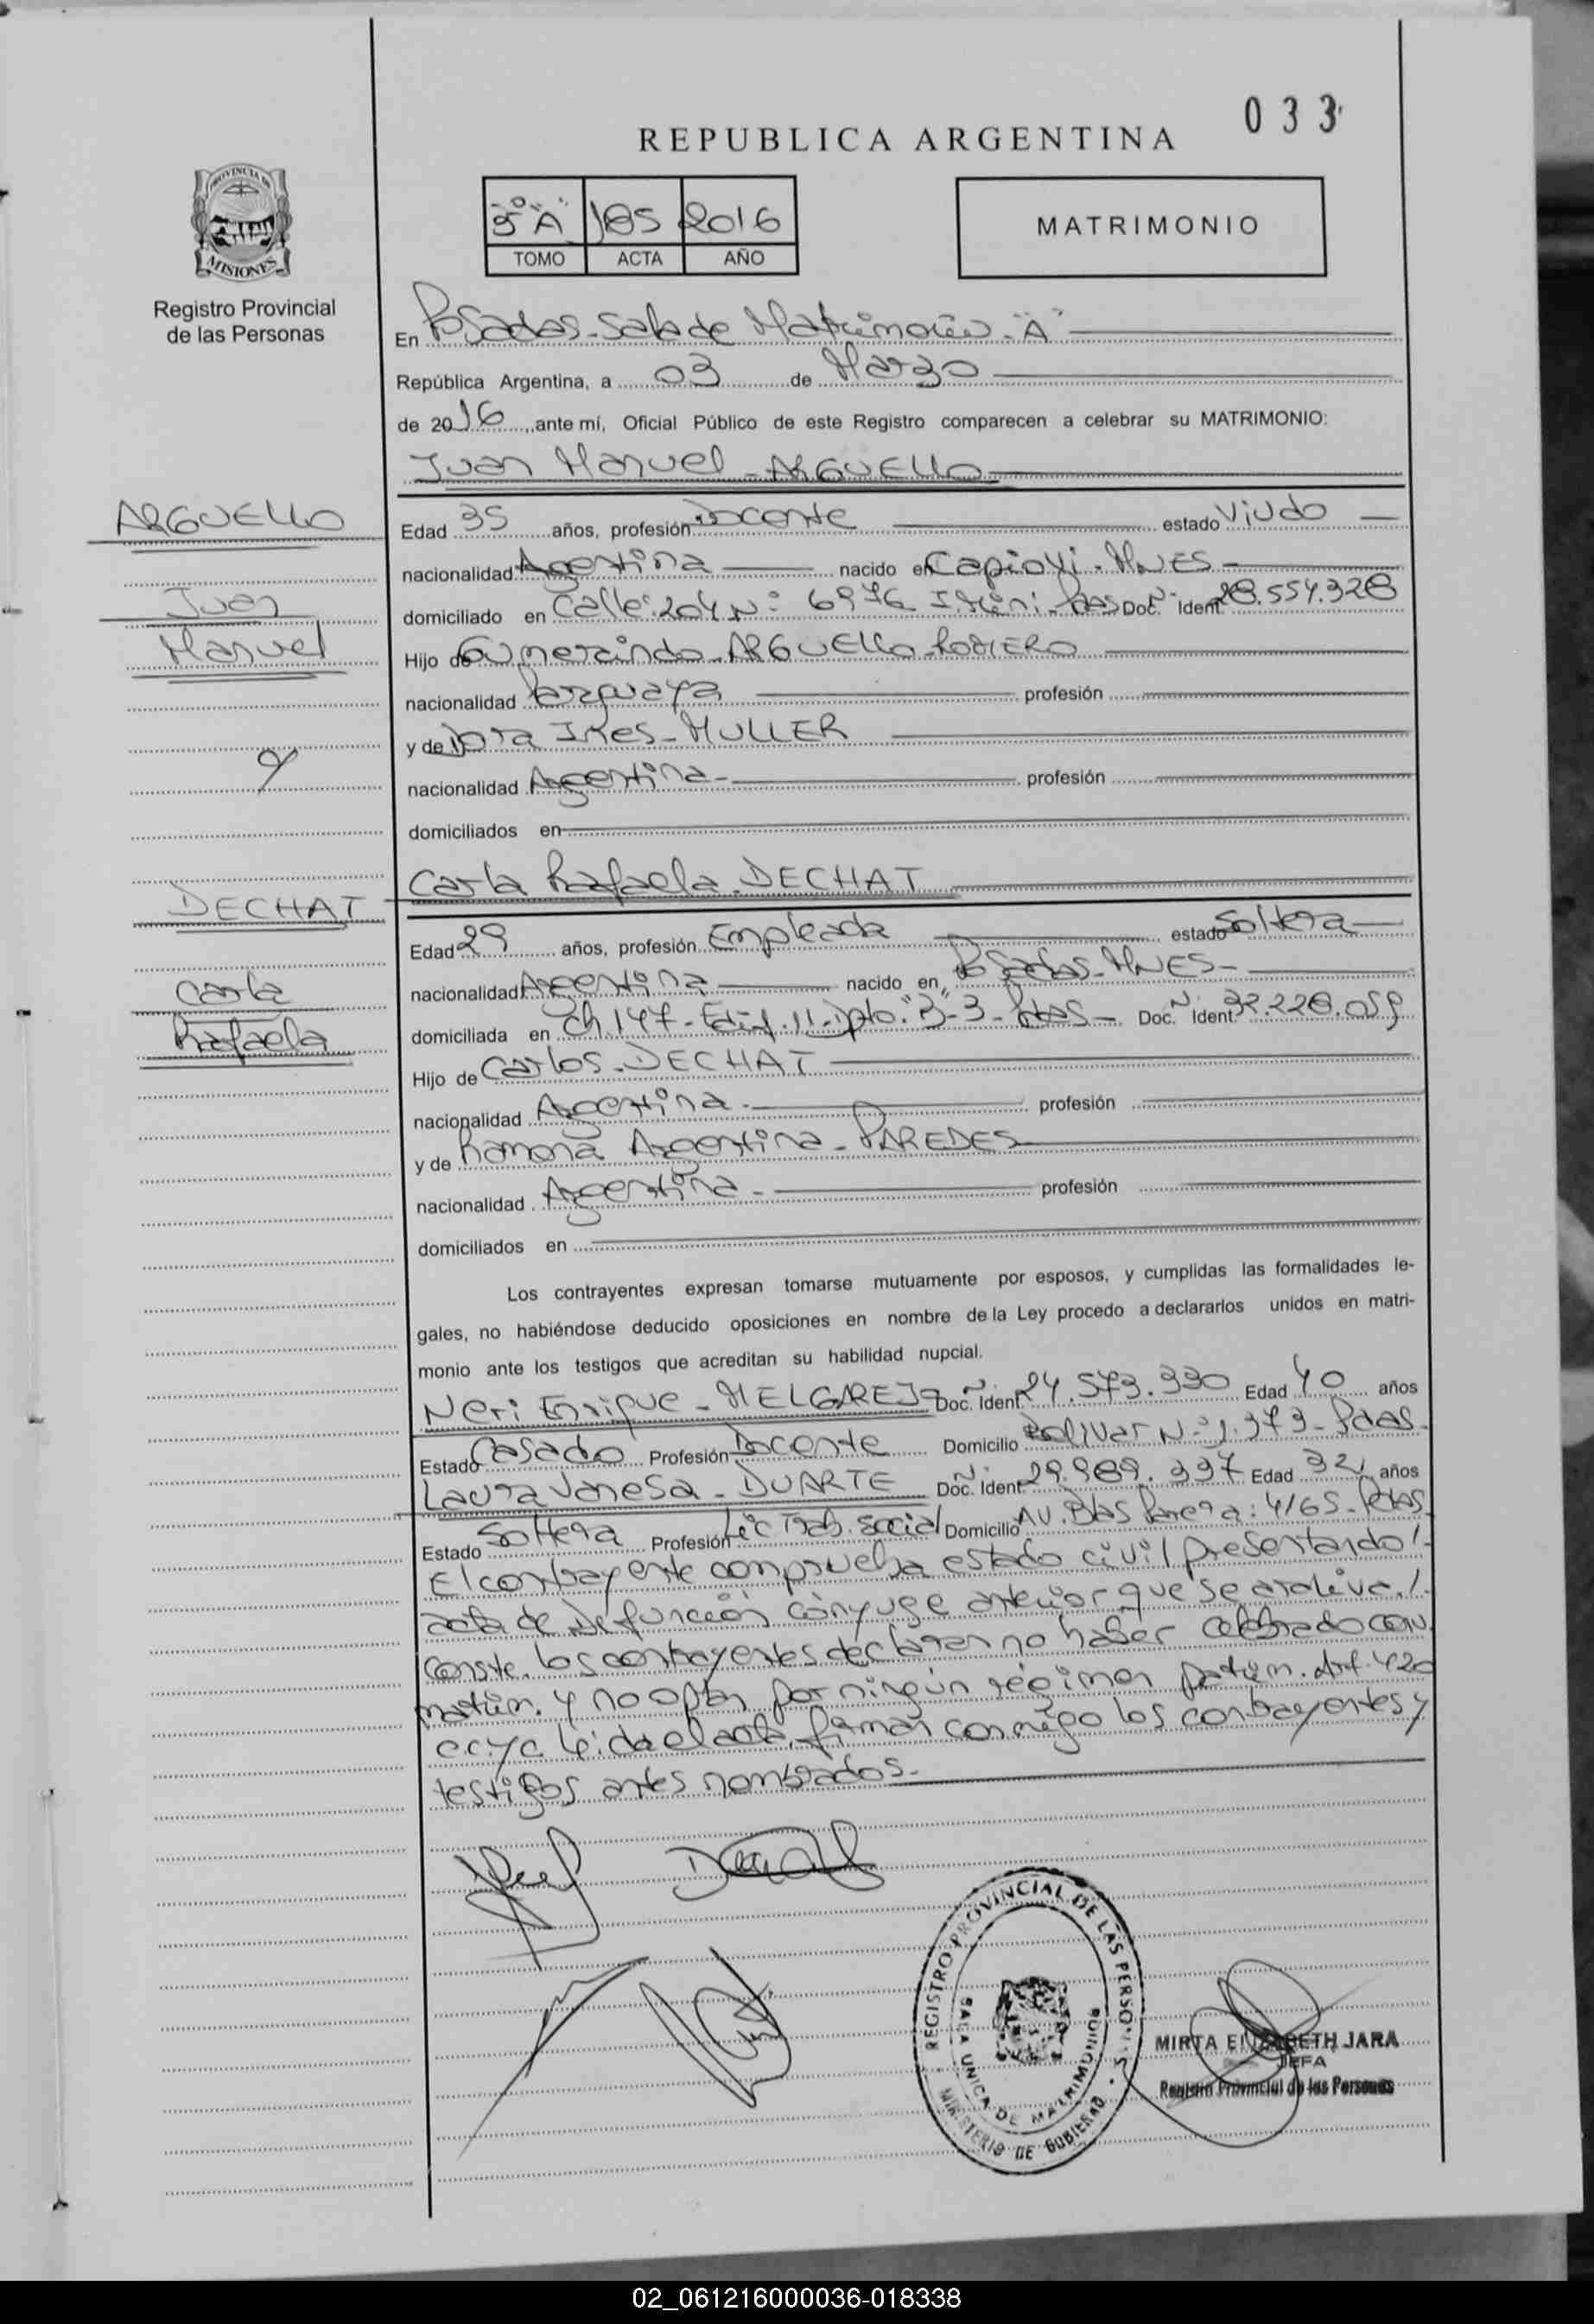 033
REPUBLICA ARGENTINA
PROVINCIA DE
MISIONES
Registro Provincial
de las Personas
"A" 2016
TOMO ACTA AÑO
MATRIMONIO
En Posadas-Sala de Matrimonio-"A"
República Argentina, a 03 de Marzo
de 2016, ante mí, Oficial Público de este Registro comparecen a celebrar su MATRIMONIO:
Juan Manuel - ARGUELLO
ARGUELLO
Juan
Manuel
y
DECHAT
Carla
Rafaela
Edad 35 años, profesión Docente estado Viudo
nacionalidad Argentina nacido en Capiovi-MNES
domiciliado en Calle:204 N: 6976 - Pdas Doc. N. Ident. 28.554.328
Hijo de Gumercindo-ARGUELLO-
nacionalidad Paraguaya profesión
y de Dora Ines-MULLER
nacionalidad Argentina- profesión
domiciliados en
Carla Rafaela-DECHAT
Edad 29 años, profesión Empleada estado Soltera
nacionalidad Argentina nacido en Posadas-MNES-
domiciliada en Ch.147-Edif.11-Dpto."B"-3-Pdas- Doc. N. Ident. 32.228.059
Hijo de Carlos-DECHAT
nacionalidad Argentina- profesión
y de Ramona Argentina-PAREDES
nacionalidad Argentina- profesión
domiciliados en
Los contrayentes expresan tomarse mutuamente por esposos, y cumplidas las formalidades le-
gales, no habiéndose deducido oposiciones en nombre de la Ley procedo a declararlos unidos en matri-
monio ante los testigos que acreditan su habilidad nupcial.
Neri Enrique-MELGAREJO Doc. N. Ident. 24.573.330 Edad 40 años
Estado Casado Profesión Docente Domicilio Bolivar N:1.373-Pdas-
Laura Vanesa-DUARTE Doc. N. Ident. 29.989.397 Edad 32 años
Estado Soltera Profesión Lic Trab. Social Domicilio AV. Blas Parera: 4165-Pdas
El contrayente comprueba estado civil presentando/
acta de Defunción cónyuge anterior que se archiva./
Conste. los contrayentes declaran no haber celebrado conv.
matrim. y no optan por ningún régimen patrim. Art.420
c.c.yc leida el acta, firman conmigo los contrayentes y
testigos antes nombrados.
REGISTRO PROVINCIAL DE LAS PERSONAS
SALA UNICA DE MATRIMONIOS
MINISTERIO DE GOBIERNO
MIRTA ELIZABETH JARA
JEFA
Registro Provincial de las Personas
02_061216000036-018338